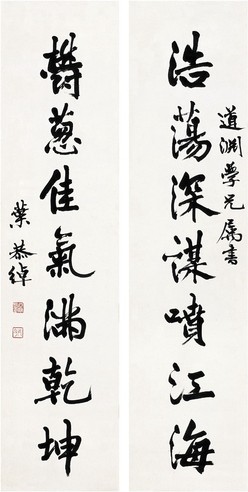 浩蕩深謀噴江海
道淵學兄屬書
鬱蔥佳氣滿乾坤
葉恭綽